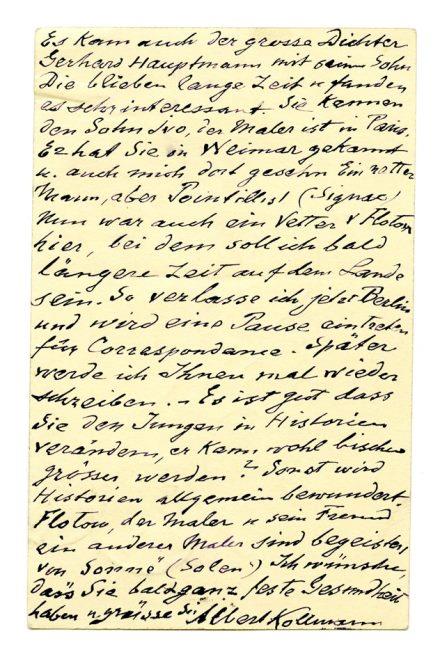 Es kam auch der grosse Dichter
Gerhard Hauptmann mit sein Sohn
Die blieben lange Zeit u fanden
es sehr interessant. Sie kennen
den Sohn Ivo, der Maler ist in Paris.
Er hat Sie in Weimar gekannt
u. auch mich dort gesehn Ein netter
Mann, aber Pointillist (Signac)
Nun war auch ein Vetter v Flotow
hier, bei dem soll ich bald
längere Zeit auf dem Lande
sein. So verlasse ich jetzt Berlin
und wird eine Pause eintreten
für Correspondance. Später
werde ich Ihnen mal wieder
schreiben. – Es ist gut dass
Sie den Jungen in Historien
verändern, er kann wohl bischen
grösser werden? Sonst wird
Historien allgemein bewundert.
Flotow, der Maler u sein Freund
ein anderer Maler sind begeistert
von Sonne (Solen) Ich wünsche,
dass Sie bald ganz feste Gesundheit
haben u. grüsse Sie Albert Kollmann